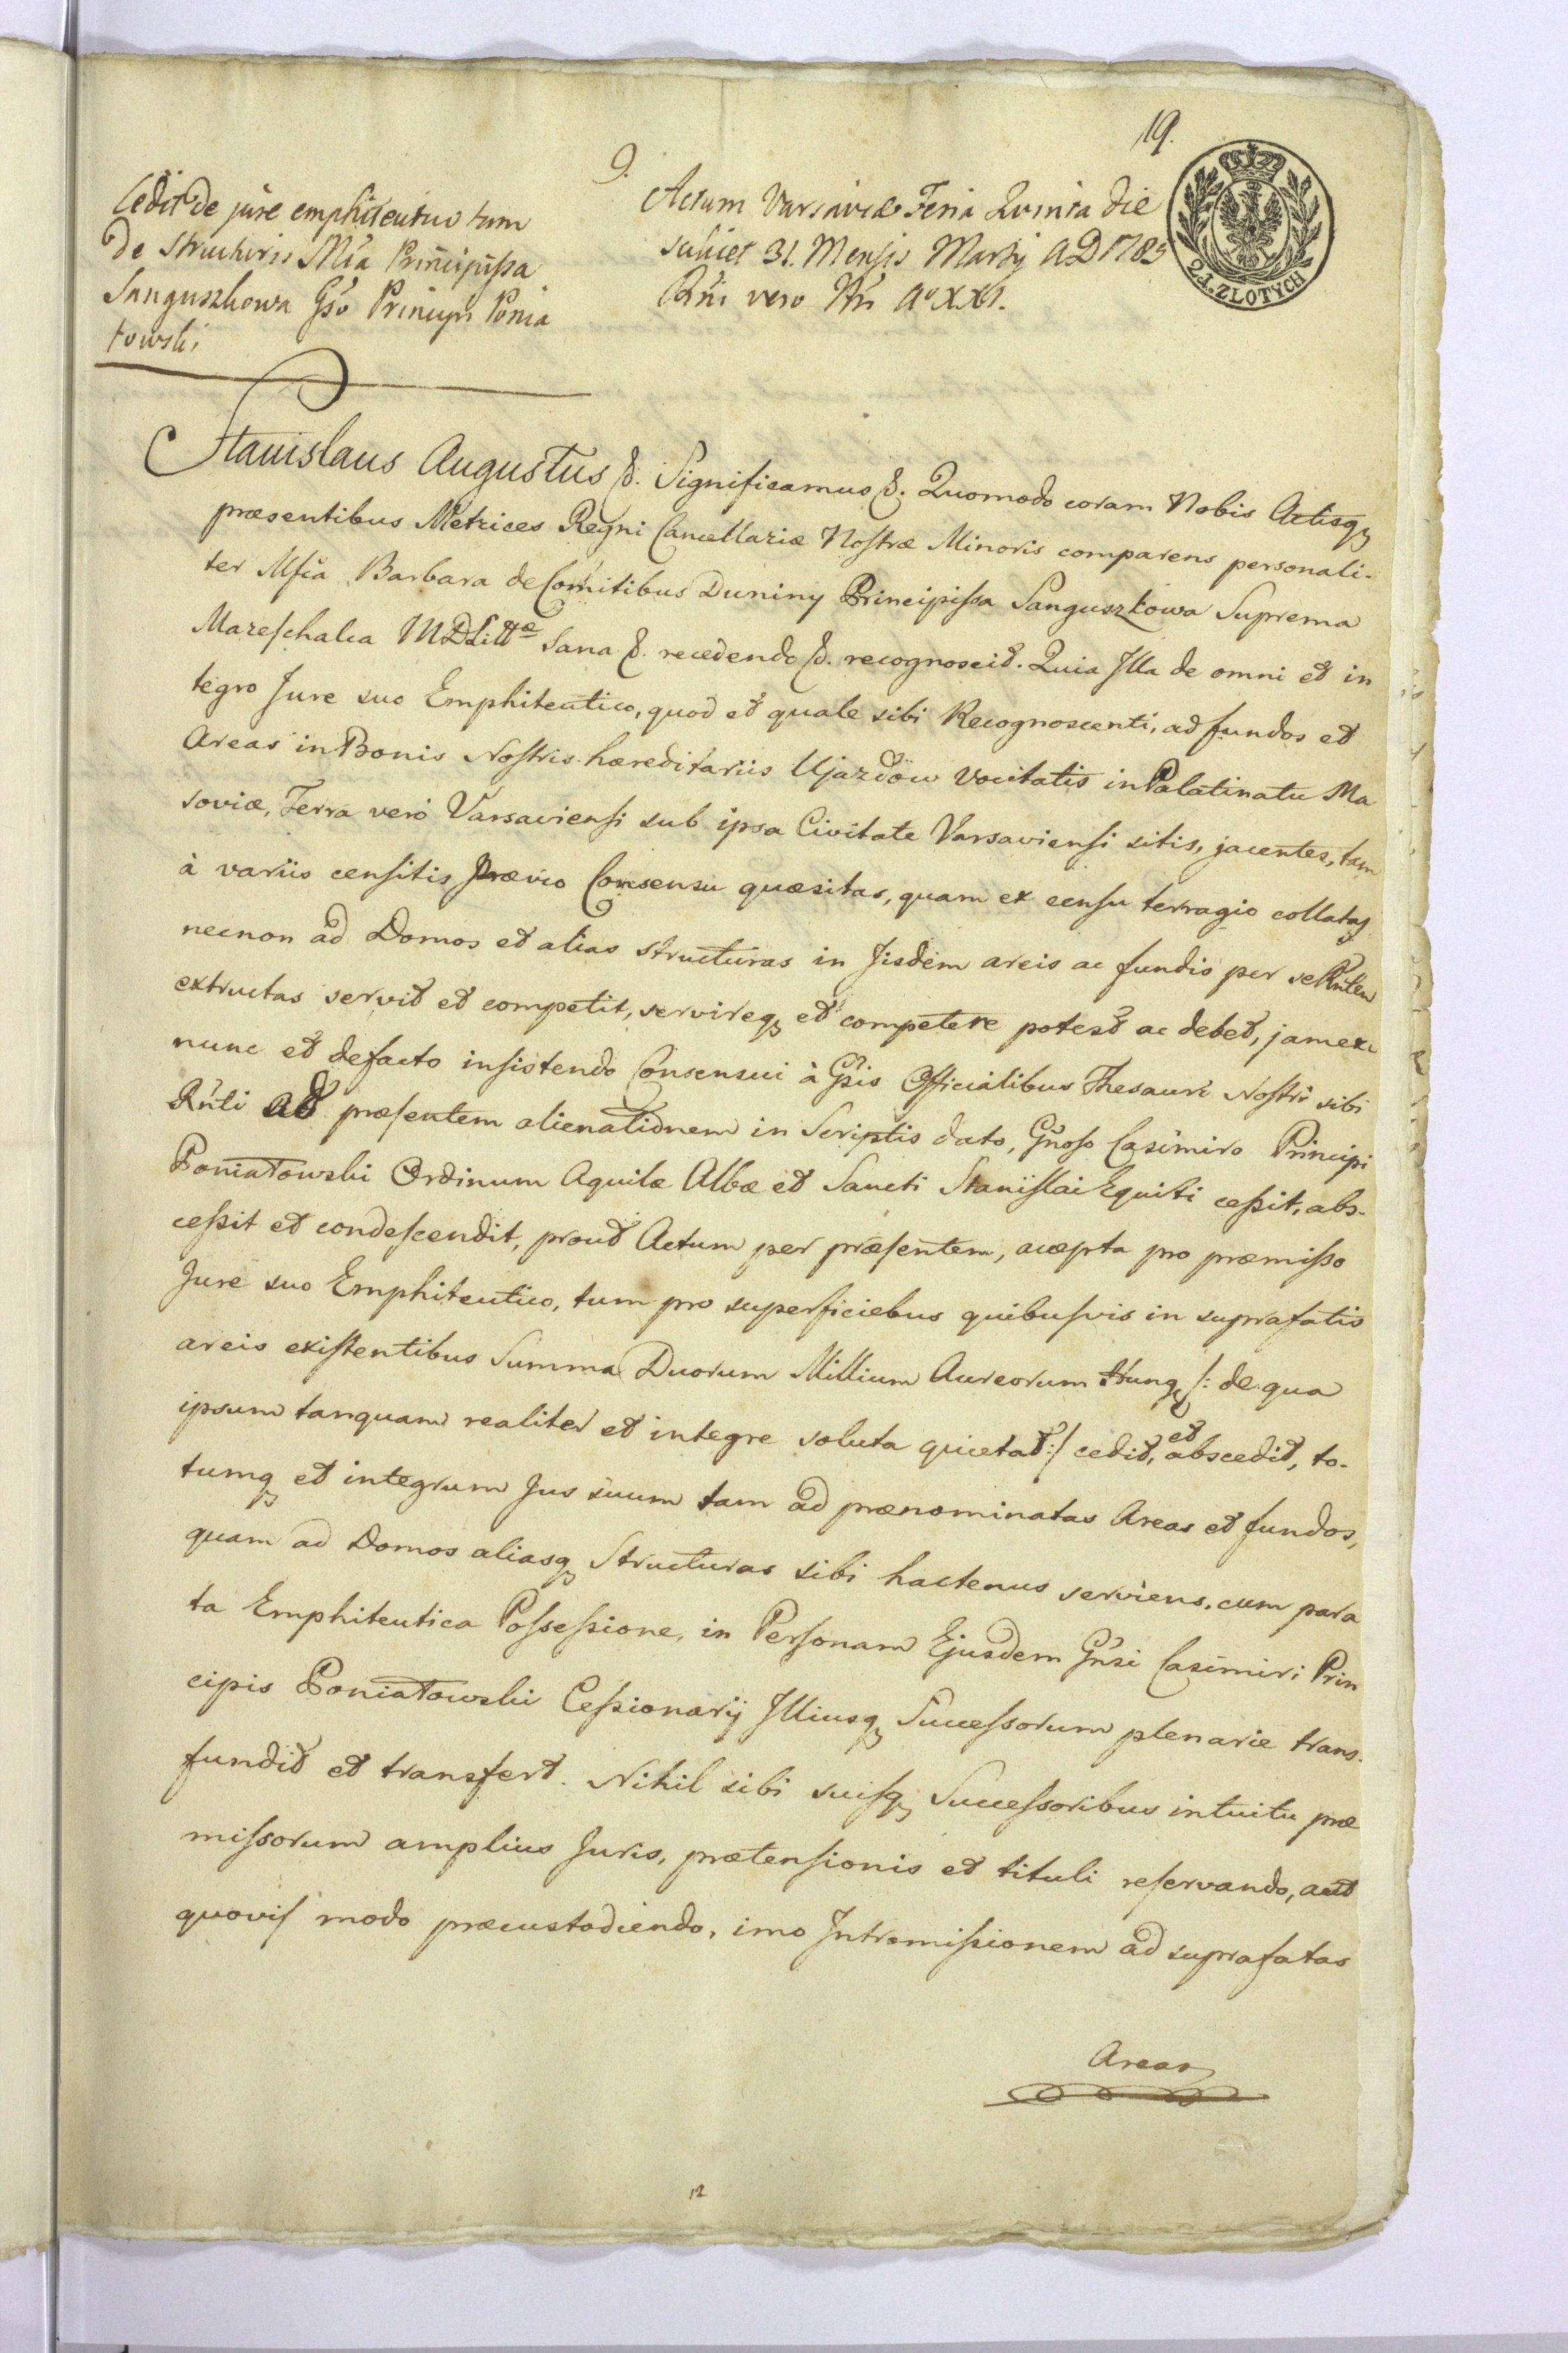 19.
9.
Cedit de jure emphiteutico tum
de structuris Mfa Principissa
Sanguszkowa Gso Principi Ponia
towski
Actum Varsaviæ Feria Quinta die
scilicet 31. Mensis Martij AD 1785
Rñi vero Nri Aº XXI.
2 zł. ZŁOTYCH
Stanislaus Augustus &. Significamus &. Quomodo coram Nobis Actisq
præsentibus Metrices Regni Cancellariæ Nostræ Minoris comparens personali-
ter Mfca Barbara de Comitibus Duniny Principissa Sanguszkowa Suprema
Mareschalca MDLittæ sana &. recedendo &. recognoscit. Quia Illa de omni et in
tegro Jure suo Emphiteutico, quod et quale sibi Recognoscenti, ad fundos et
Areas in Bonis Nostris hæreditariis Ujazdow vocitatis in Palatinatu Ma
soviæ, Terra vero Varsaviensi sub ipsa Civitate Varsaviensi sitis, jacentes, tam
à variis censitis prævio Consensu quæsitas, quam ex censu terragio collatas
necnon ad Domos et alias structuras in Iisdem areis ac fundis per se Rñtem
extructas servit et competit, servireq et competere potest ac debet, jam ex
nunc et defacto insistendo Consensui à Gsis Officialibus Thesauri Nostri sibi
Rñti ad præsentem alienationem in Scriptis dato, Gñoso Casimiro Principi
Poniatowski Ordinum Aquilæ Albæ et Sancti Stanislai Equiti cessit, abs-
cessit et condescendit, prout Actum per præsentem, accepta pro præmisso
Jure suo Emphiteutico, tum pro superficiebus quibusvis in suprafatis
areis existentibus Summa Duorum Millium Aureorum Hung /: de qua
ipsum tanquam realiter et integre soluta quietat :/ cedit, et abscedit, to-
tumq et integrum Jus suum tam ad prænominatas Areas et fundos,
quam ad Domos aliasq Structuras sibi hactenus serviens, cum para
ta Emphiteutica Possessione, in Personam Ejusdem Gñsi Casimiri Prin
cipis Poniatowski Cessionarij Illiusq Successorum plenarie trans-
fundit et transfert. Nihil sibi suisq Successoribus intuitu præ
missorum amplius Juris, prætensionis et tituli reservando, aut
quovis modo præcustodiendo, imo Intromissionem ad suprafatas
Areas
12